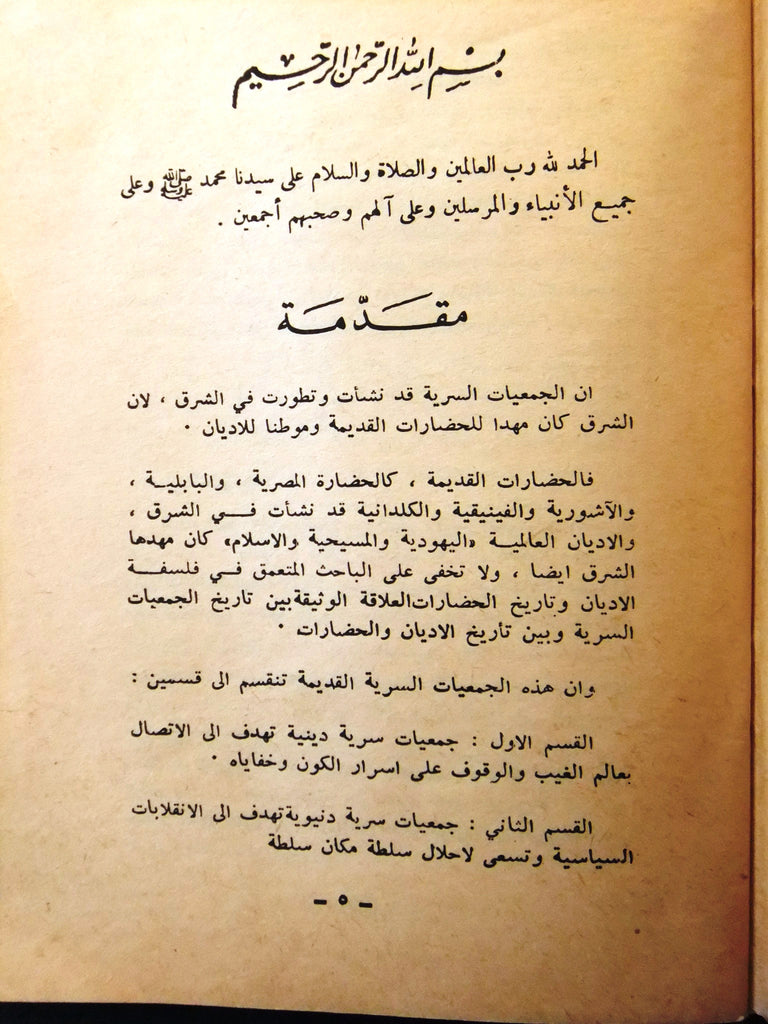 بسم الله الرحمن الرحيم
الحمد لله رب العالمين والصلاة والسلام على سيدنا محمد ﷺ وعلى
جميع الأنبياء والمرسلين وعلى آلهم وصحبهم أجمعين .
مقدّمة
ان الجمعيات السرية قد نشأت وتطورت في الشرق ، لان
الشرق كان مهدا للحضارات القديمة وموطنا للاديان .
فالحضارات القديمة ، كالحضارة المصرية ، والبابلية ،
والآشورية والفينيقية والكلدانية قد نشأت في الشرق ،
والاديان العالمية «اليهودية والمسيحية والاسلام» كان مهدها
الشرق ايضا ، ولا تخفى على الباحث المتعمق في فلسفة
الاديان وتاريخ الحضارات العلاقة الوثيقة بين تاريخ الجمعيات
السرية وبين تأريخ الاديان والحضارات .
وان هذه الجمعيات السرية القديمة تنقسم الى قسمين :
القسم الاول : جمعيات سرية دينية تهدف الى الاتصال
بعالم الغيب والوقوف على اسرار الكون وخفاياه .
القسم الثاني : جمعيات سرية دنيوية تهدف الى الانقلابات
السياسية وتسعى لاحلال سلطة مكان سلطة
- ٥ -